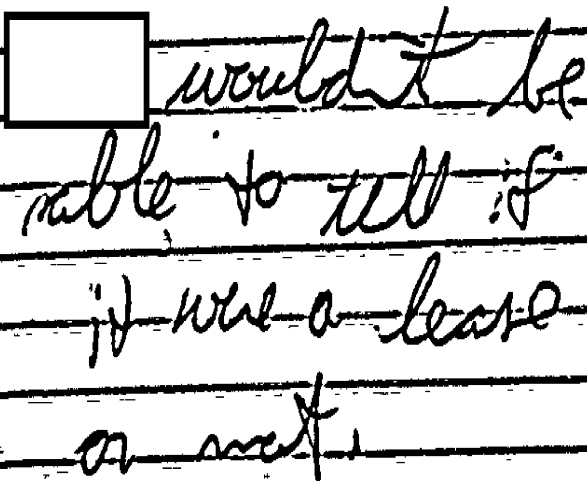 wouldn't be
able to tell if
it were a lease
or not.